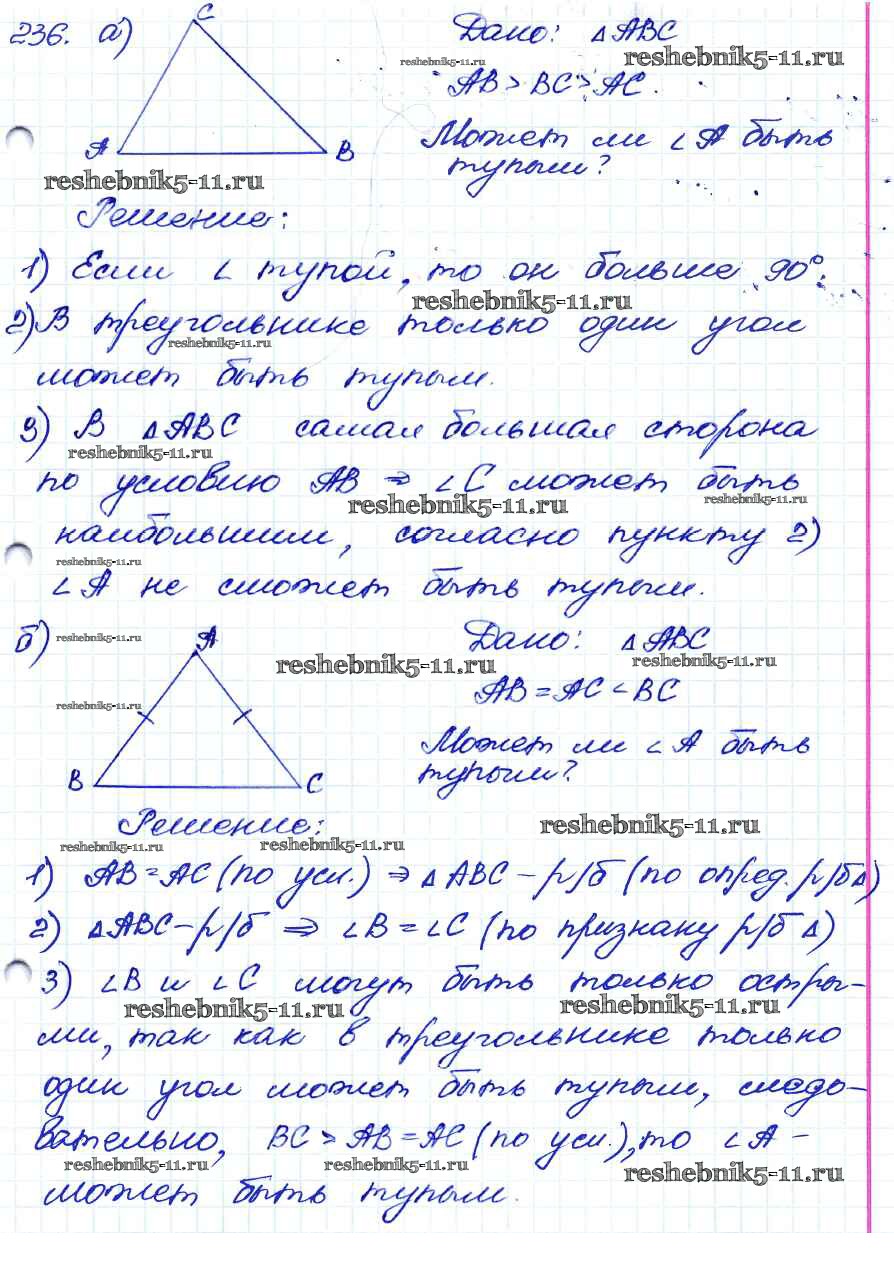 236. а)
C
A
B
Дано: △ABC
reshebnik5-11.ru
reshebnik5-11.ru
AB > BC > AC.
Может ли ∠A быть
тупым?
reshebnik5-11.ru
Решение:
1) Если ∠ тупой, то он больше 90°.
reshebnik5-11.ru
2) В треугольнике только один угол
reshebnik5-11.ru
может быть тупым.
3) В △ABC самая большая сторона
reshebnik5-11.ru
по условию AB ⇒ ∠C может быть
reshebnik5-11.ru
reshebnik5-11.ru
наибольшим, согласно пункту 2)
reshebnik5-11.ru
∠A не сможет быть тупым.
б)
reshebnik5-11.ru
A
B
C
reshebnik5-11.ru
Дано: △ABC
reshebnik5-11.ru
AB = AC < BC
reshebnik5-11.ru
Может ли ∠A быть
тупым?
Решение:
reshebnik5-11.ru
reshebnik5-11.ru
reshebnik5-11.ru
1) AB = AC (по усл.) ⇒ △ABC – р/б (по опред. р/б△)
2) △ABC – р/б ⇒ ∠B = ∠C (по признаку р/б △)
3) ∠B и ∠C могут быть только остры-
reshebnik5-11.ru
reshebnik5-11.ru
ми, так как в треугольнике только
один угол может быть тупым, следо-
вательно, BC > AB = AC (по усл.), то ∠A –
reshebnik5-11.ru
reshebnik5-11.ru
reshebnik5-11.ru
может быть тупым.